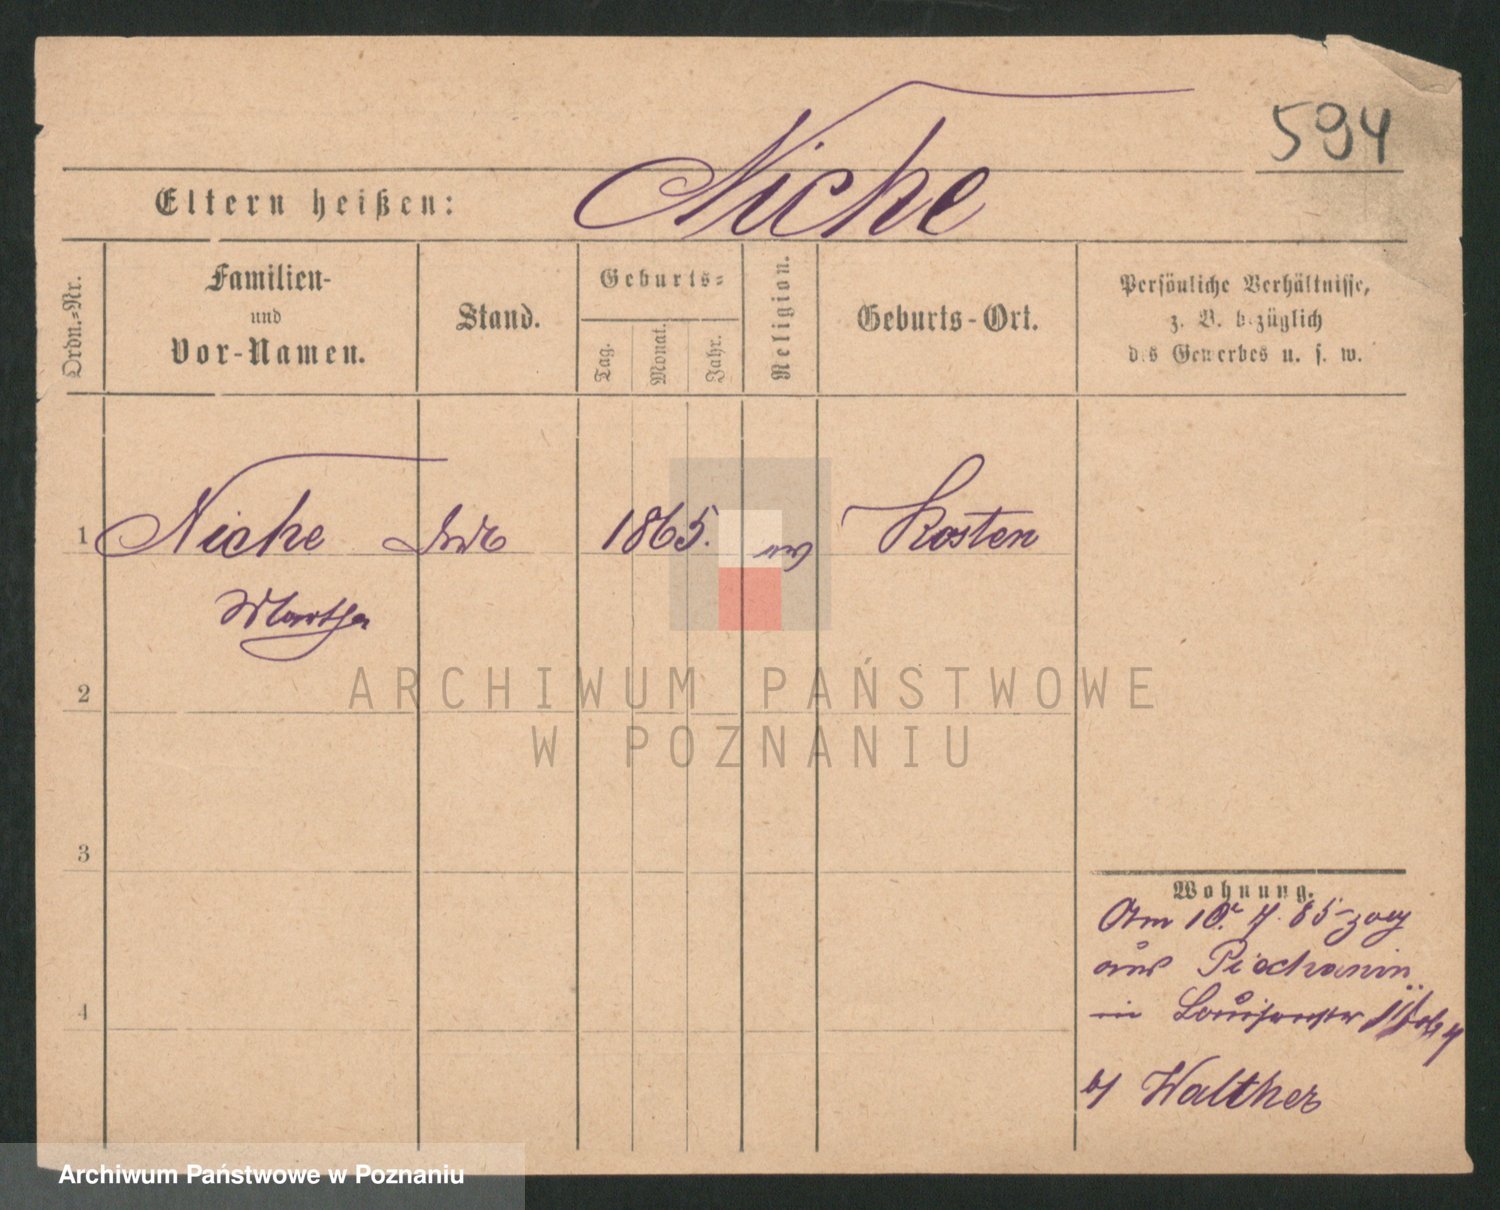 594
Niche
Eltern heißen:
Ordn.-Nr.
Familien-
und
Vor-Namen.
Stand.
Geburts-
Tag.
Monat.
Jahr.
Religion.
Geburts-Ort.
Persönliche Verhältnisse,
z. B. bezüglich
des Gewerbes u. s. w.
1
Niche
1865.
ev
Kosten
Martha
2
3
4
Wohnung.
Am 10. 7. 85 zog
aus Piechanin
in Louisenstr
b/ Walther
ARCHIWUM PAŃSTWOWE
W POZNANIU
Archiwum Państwowe w Poznaniu